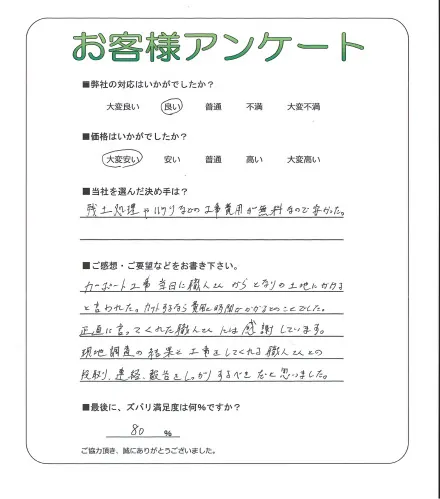 お客様アンケート
■弊社の対応はいかがでしたか？
大変良い 良い 普通 不満 大変不満
■価格はいかがでしたか？
大変安い 安い 普通 高い 大変高い
■当社を選んだ決め手は？
残土処理やハツリなどの工事費用が無料なので安かった。
■ご感想・ご要望などをお書き下さい。
カーポート工事当日に職人さんからとなりの土地にかかる
と言われた。カットするなら費用と時間がかかるとのことでした。
正直に言ってくれた職人さんには感謝しています。
現地調査の結果と工事をしてくれる職人さんとの
段取り、連絡、報告をしっかりするべきだと思いました。
■最後に、ズバリ満足度は何%ですか？
80 %
ご協力頂き、誠にありがとうございました。